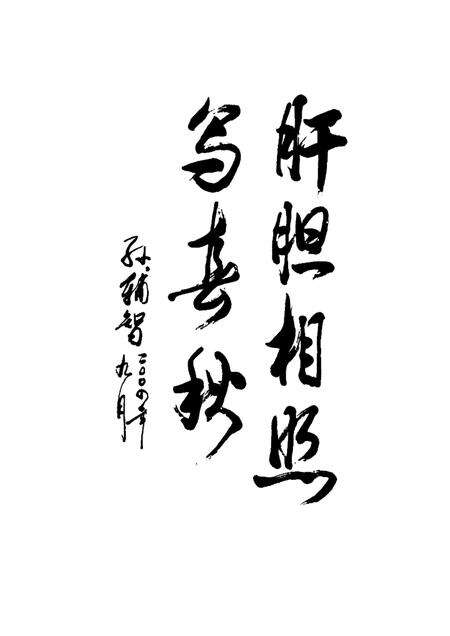 肝胆相照
写春秋
孙辅智 二〇〇四年
九月